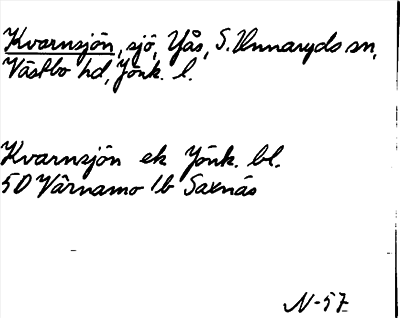 Kvarnsjön, sjö, Yås, S. Unnaryds sn,
Västbo hd, Jönk. l.
Kvarnsjön ek Jönk. bl.
5D Värnamo 1b Saxnäs
N-57